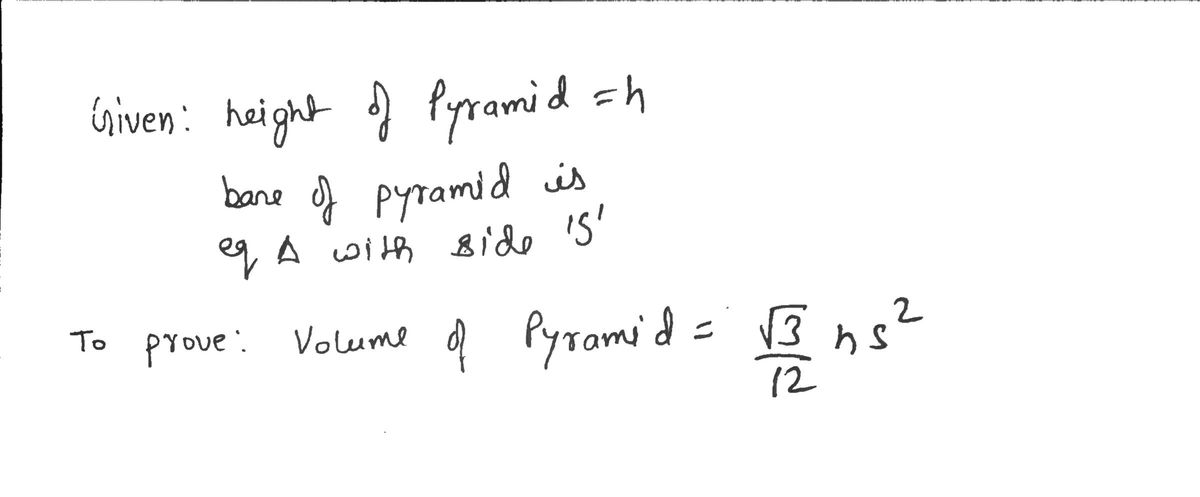 Given: height of Pyramid = h
base of pyramid is
eq Δ with side 's'
To prove: Volume of Pyramid = √3/12 h s²